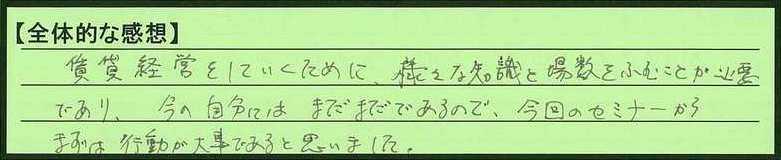 【全体的な感想】
賃貸経営をしていくために、様々な知識と場数をふむことが必要
であり、今の自分にはまだまだであるので、今回のセミナーから
まずは行動が大事であると思いました。